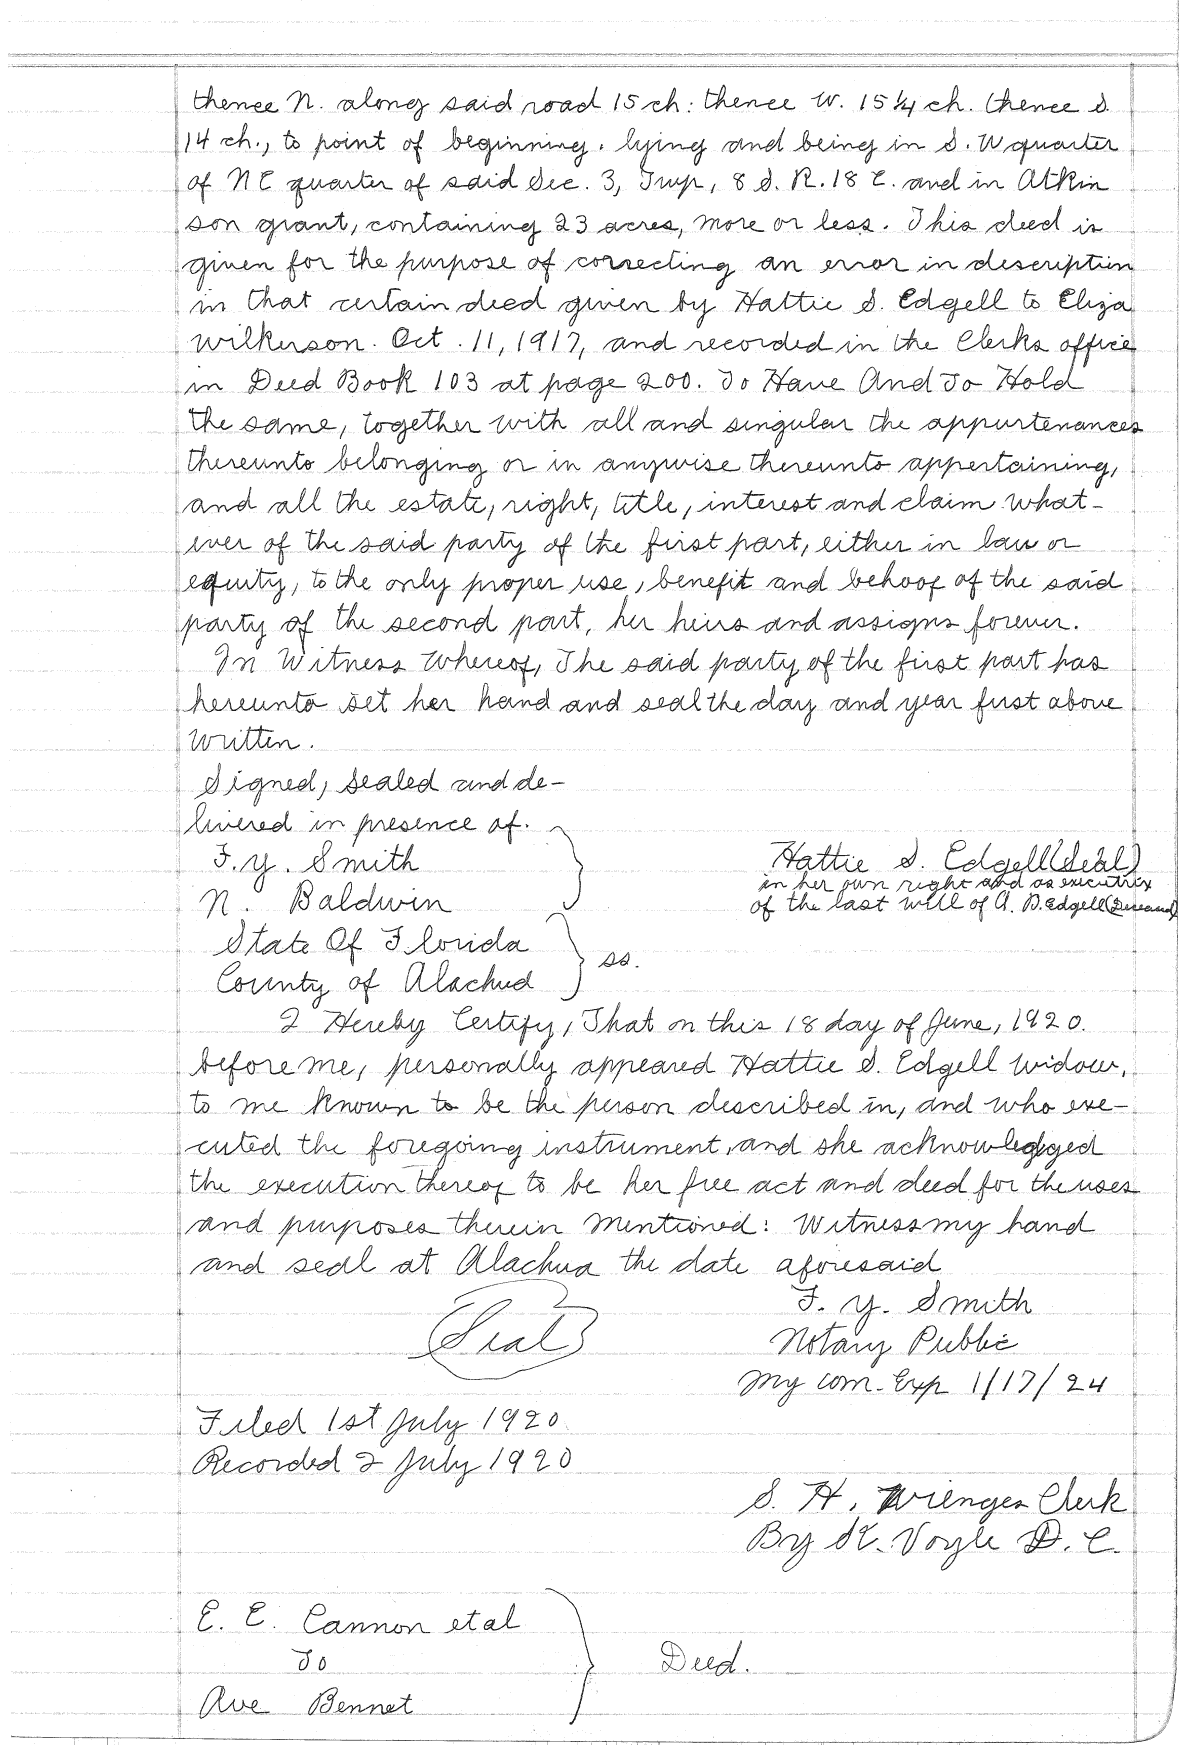 thence N. along said road 15 ch: thence W. 15 1/4 ch. thence S.
14 ch., to point of beginning. lying and being in S. W quarter
of NE quarter of said Sec. 3, Twp, 8 S. R. 18 E. and in Atkin
son grant, containing 23 acres, more or less. This deed is
given for the purpose of correcting an error in description
in that certain deed given by Hattie S. Edgell to Eliza
Wilkerson. Oct. 11, 1917, and recorded in the Clerks office
in Deed Book 103 at page 200. To Have And To Hold
the same, together with all and singular the appurtenances
thereunto belonging or in anywise thereunto appertaining,
and all the estate, right, title, interest and claim what-
ever of the said party of the first part, either in law or
equity, to the only proper use, benefit and behoof of the said
party of the second part, her heirs and assigns forever.
In Witness Whereof, The said party of the first part has
hereunto set her hand and seal the day and year first above
written.
Signed, sealed and de-
livered in presence of.
F. Y. Smith
Hattie S. Edgell (Seal)
in her own right and as executrix
N. Baldwin
of the last will of A. D. Edgell (Deceased)
State Of Florida
ss.
County of Alachua
I Hereby Certify, That on this 18 day of June, 1920.
before me, personally appeared Hattie S. Edgell widow,
to me known to be the person described in, and who exe-
cuted the foregoing instrument, and she acknowledged
the execution thereof to be her free act and deed for the uses
and purposes therein mentioned: Witness my hand
and seal at Alachua the date aforesaid
F. Y. Smith
Seal
Notary Public
My com. Exp 1/17/24
Filed 1st July 1920
Recorded 2 July 1920
S. H. Wienges Clerk
By St. Voyle D. C.
E. E. Cannon et al
To
Deed.
Ave Bennet